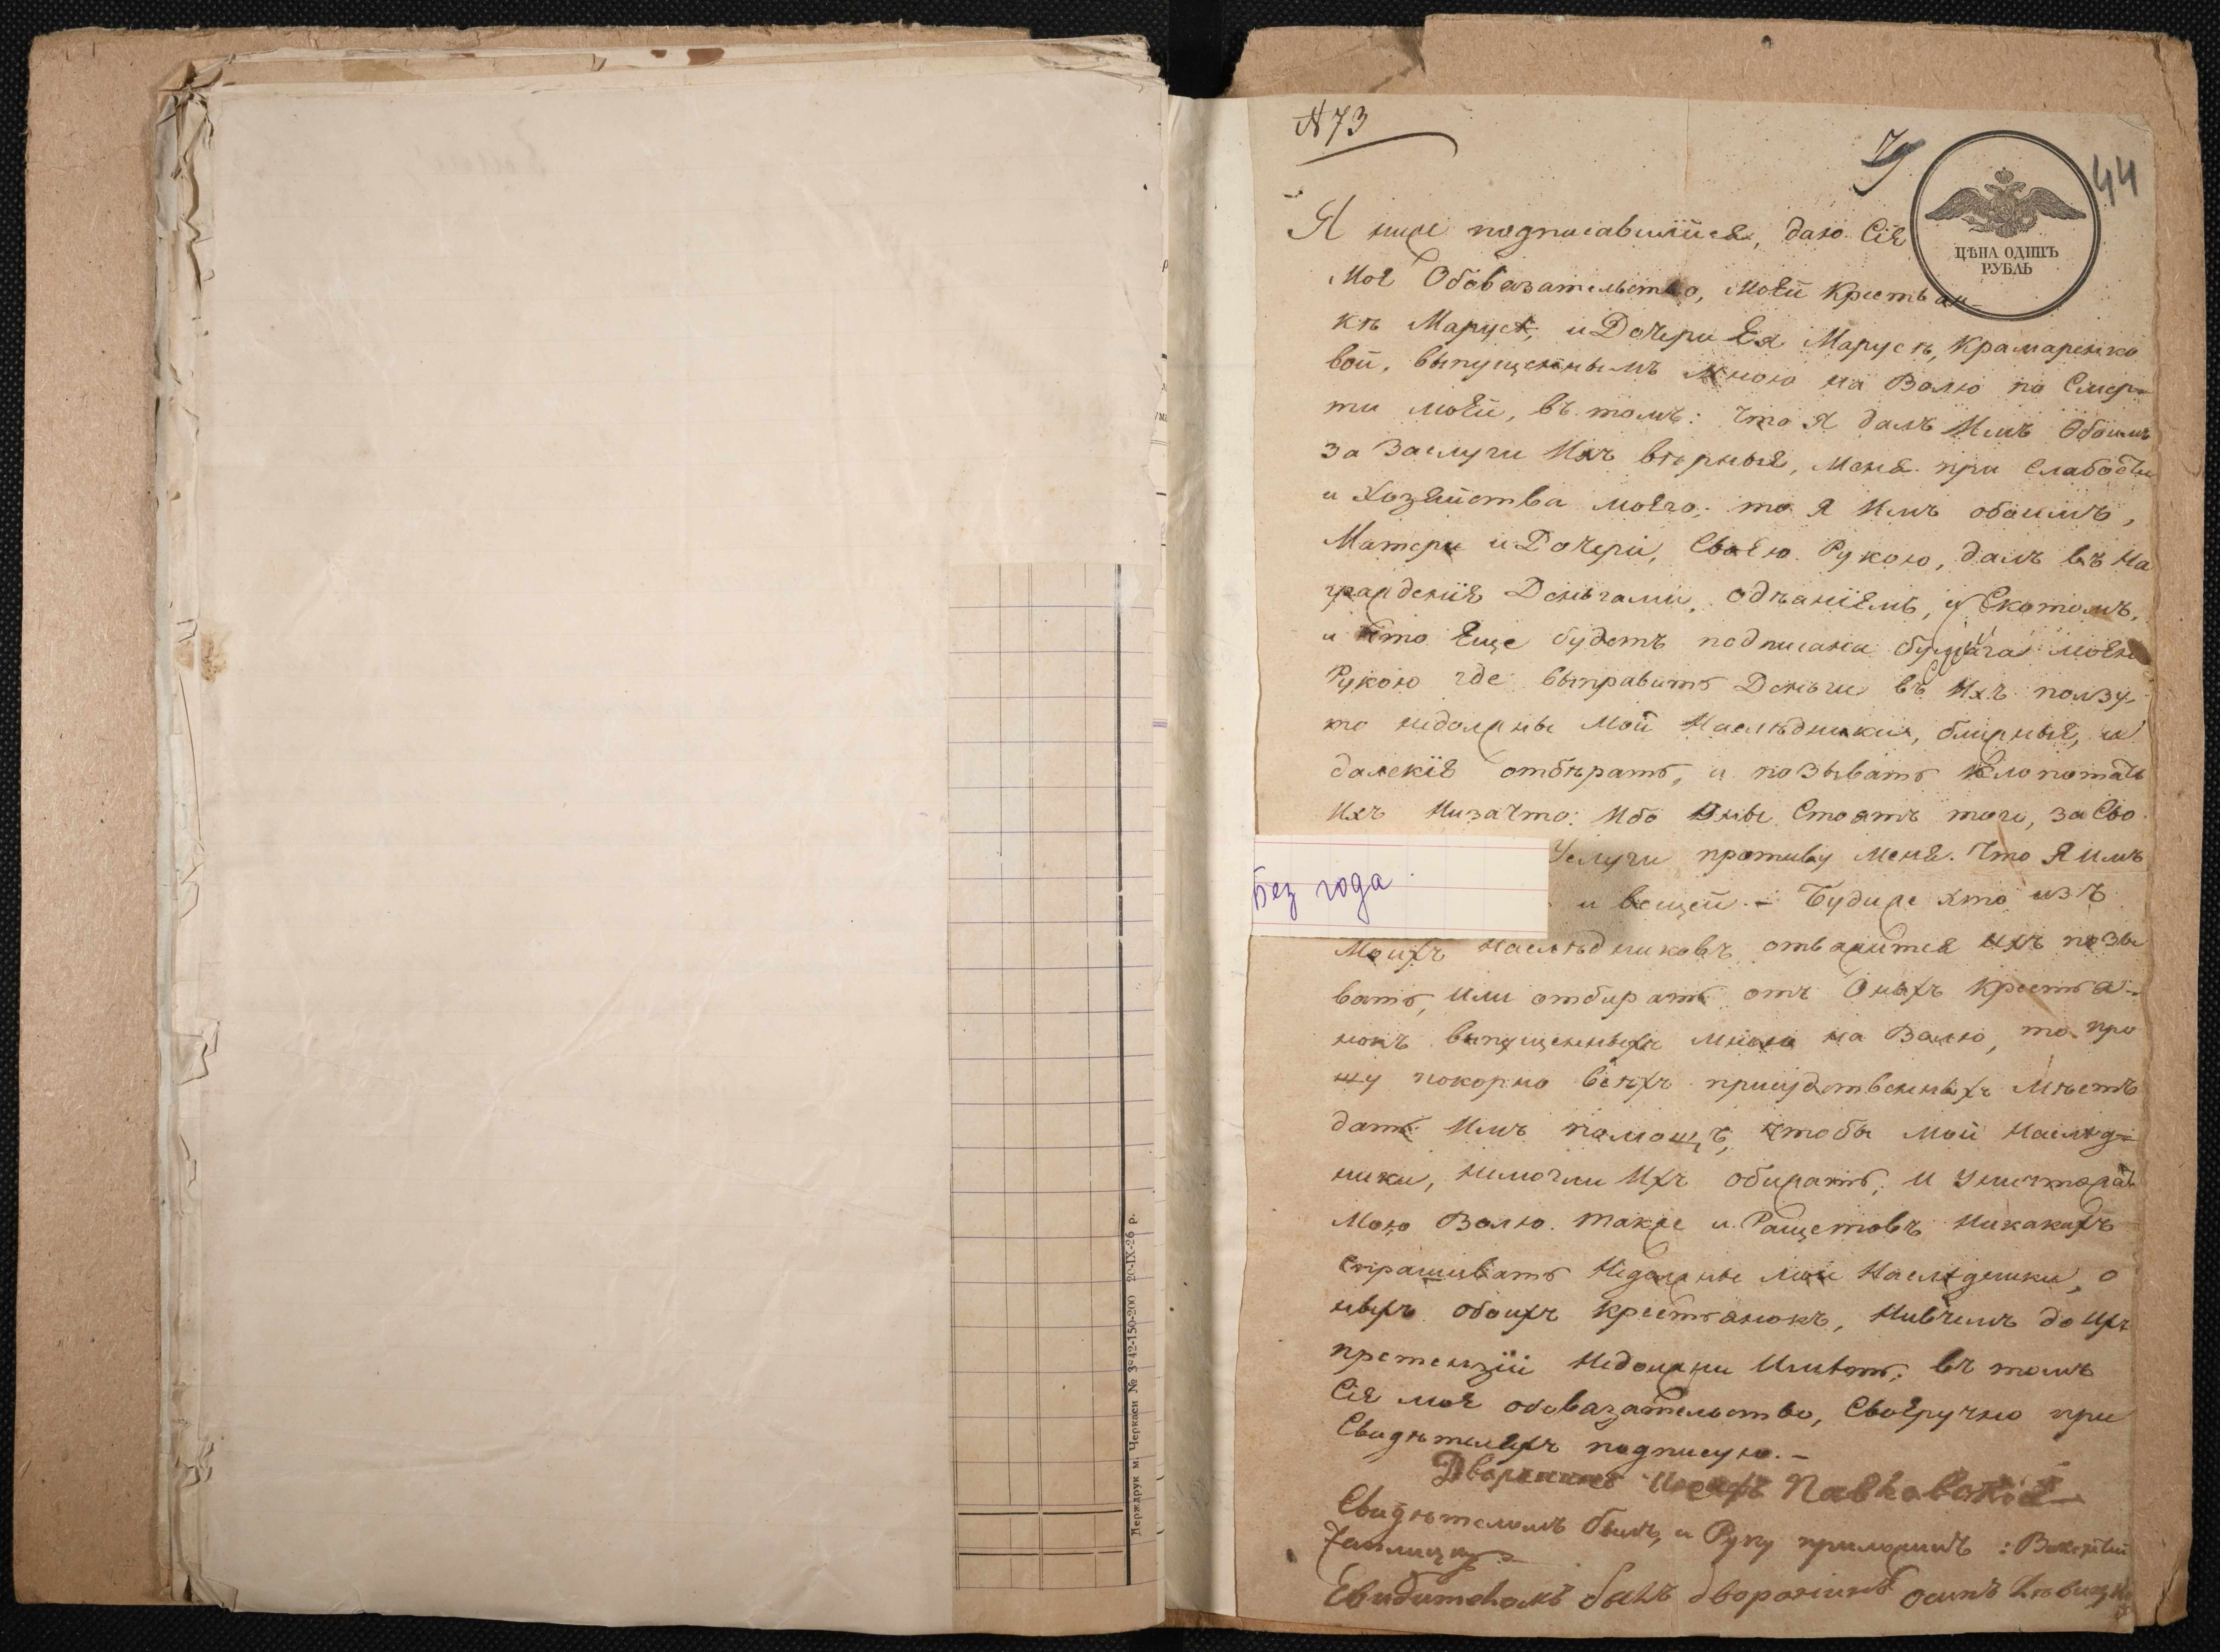 № 73
79
44
ЦѢНА ОДИНЪ
РУБЛЬ
Я ниже подписавшійся, даю Сіе
Мое Обовязательство, моей Крестьян-
кѣ Марусѣ, и Дочери Ея Марусѣ, Крамаренко
вой, выпущеннымъ мною на Волю по Смер-
ти моей, въ томъ: что Я далъ Имъ Обоимъ
за Заслуги Ихъ верные, меня при Слабости
и Хозяйства моего; то Я Имъ обоимъ,
Матери и Дочери, Своею Рукою, далъ въ На
граждение Деньгами, одѣаніемъ, и Скотомъ,
и что Еще будетъ подписана бумага моею
Рукою где выправить Деньги въ Ихъ ползу,
то недолжны Мои Наслѣдники, ближные, и
далекіе отбѣрать, и позывать Клопотать
Ихъ Низачто: Ибо Оные Стоятъ того, за Сво
Услуги противу Меня. Что Я имъ
Без года
и вещей. – Будиже хто изъ
Моихъ Наслѣдниковъ отважится Ихъ позы
вать, или отбирать отъ Оныхъ Крестья-
нокъ выпущенныхъ мною на Волю, то про
шу покорно всѣхъ присудственныхъ Мѣстъ
дать Имъ помощъ, чтобы Мои Наслѣд-
ники, немогли Ихъ обижать, и Уничтожать
Мою Волю. также и Ращетовъ Никакихъ
спрашивать Недолжные мои Наслѣдники, о
ныхъ обоихъ Крестьянокъ, Нивчемъ до Ихъ
претензіи Недолжни Имѣть, въ томъ
Сіе мое обовязательство, Своеручно при
Свидѣтеляхъ подписую. –
Дворянинъ
Свидѣтелемъ былъ, и Руку приложилъ:
Свидителомъ былъ дворянинъ осипъ
Держдрук м. Черкаси № 3242-150-200 20-IX-26 р.